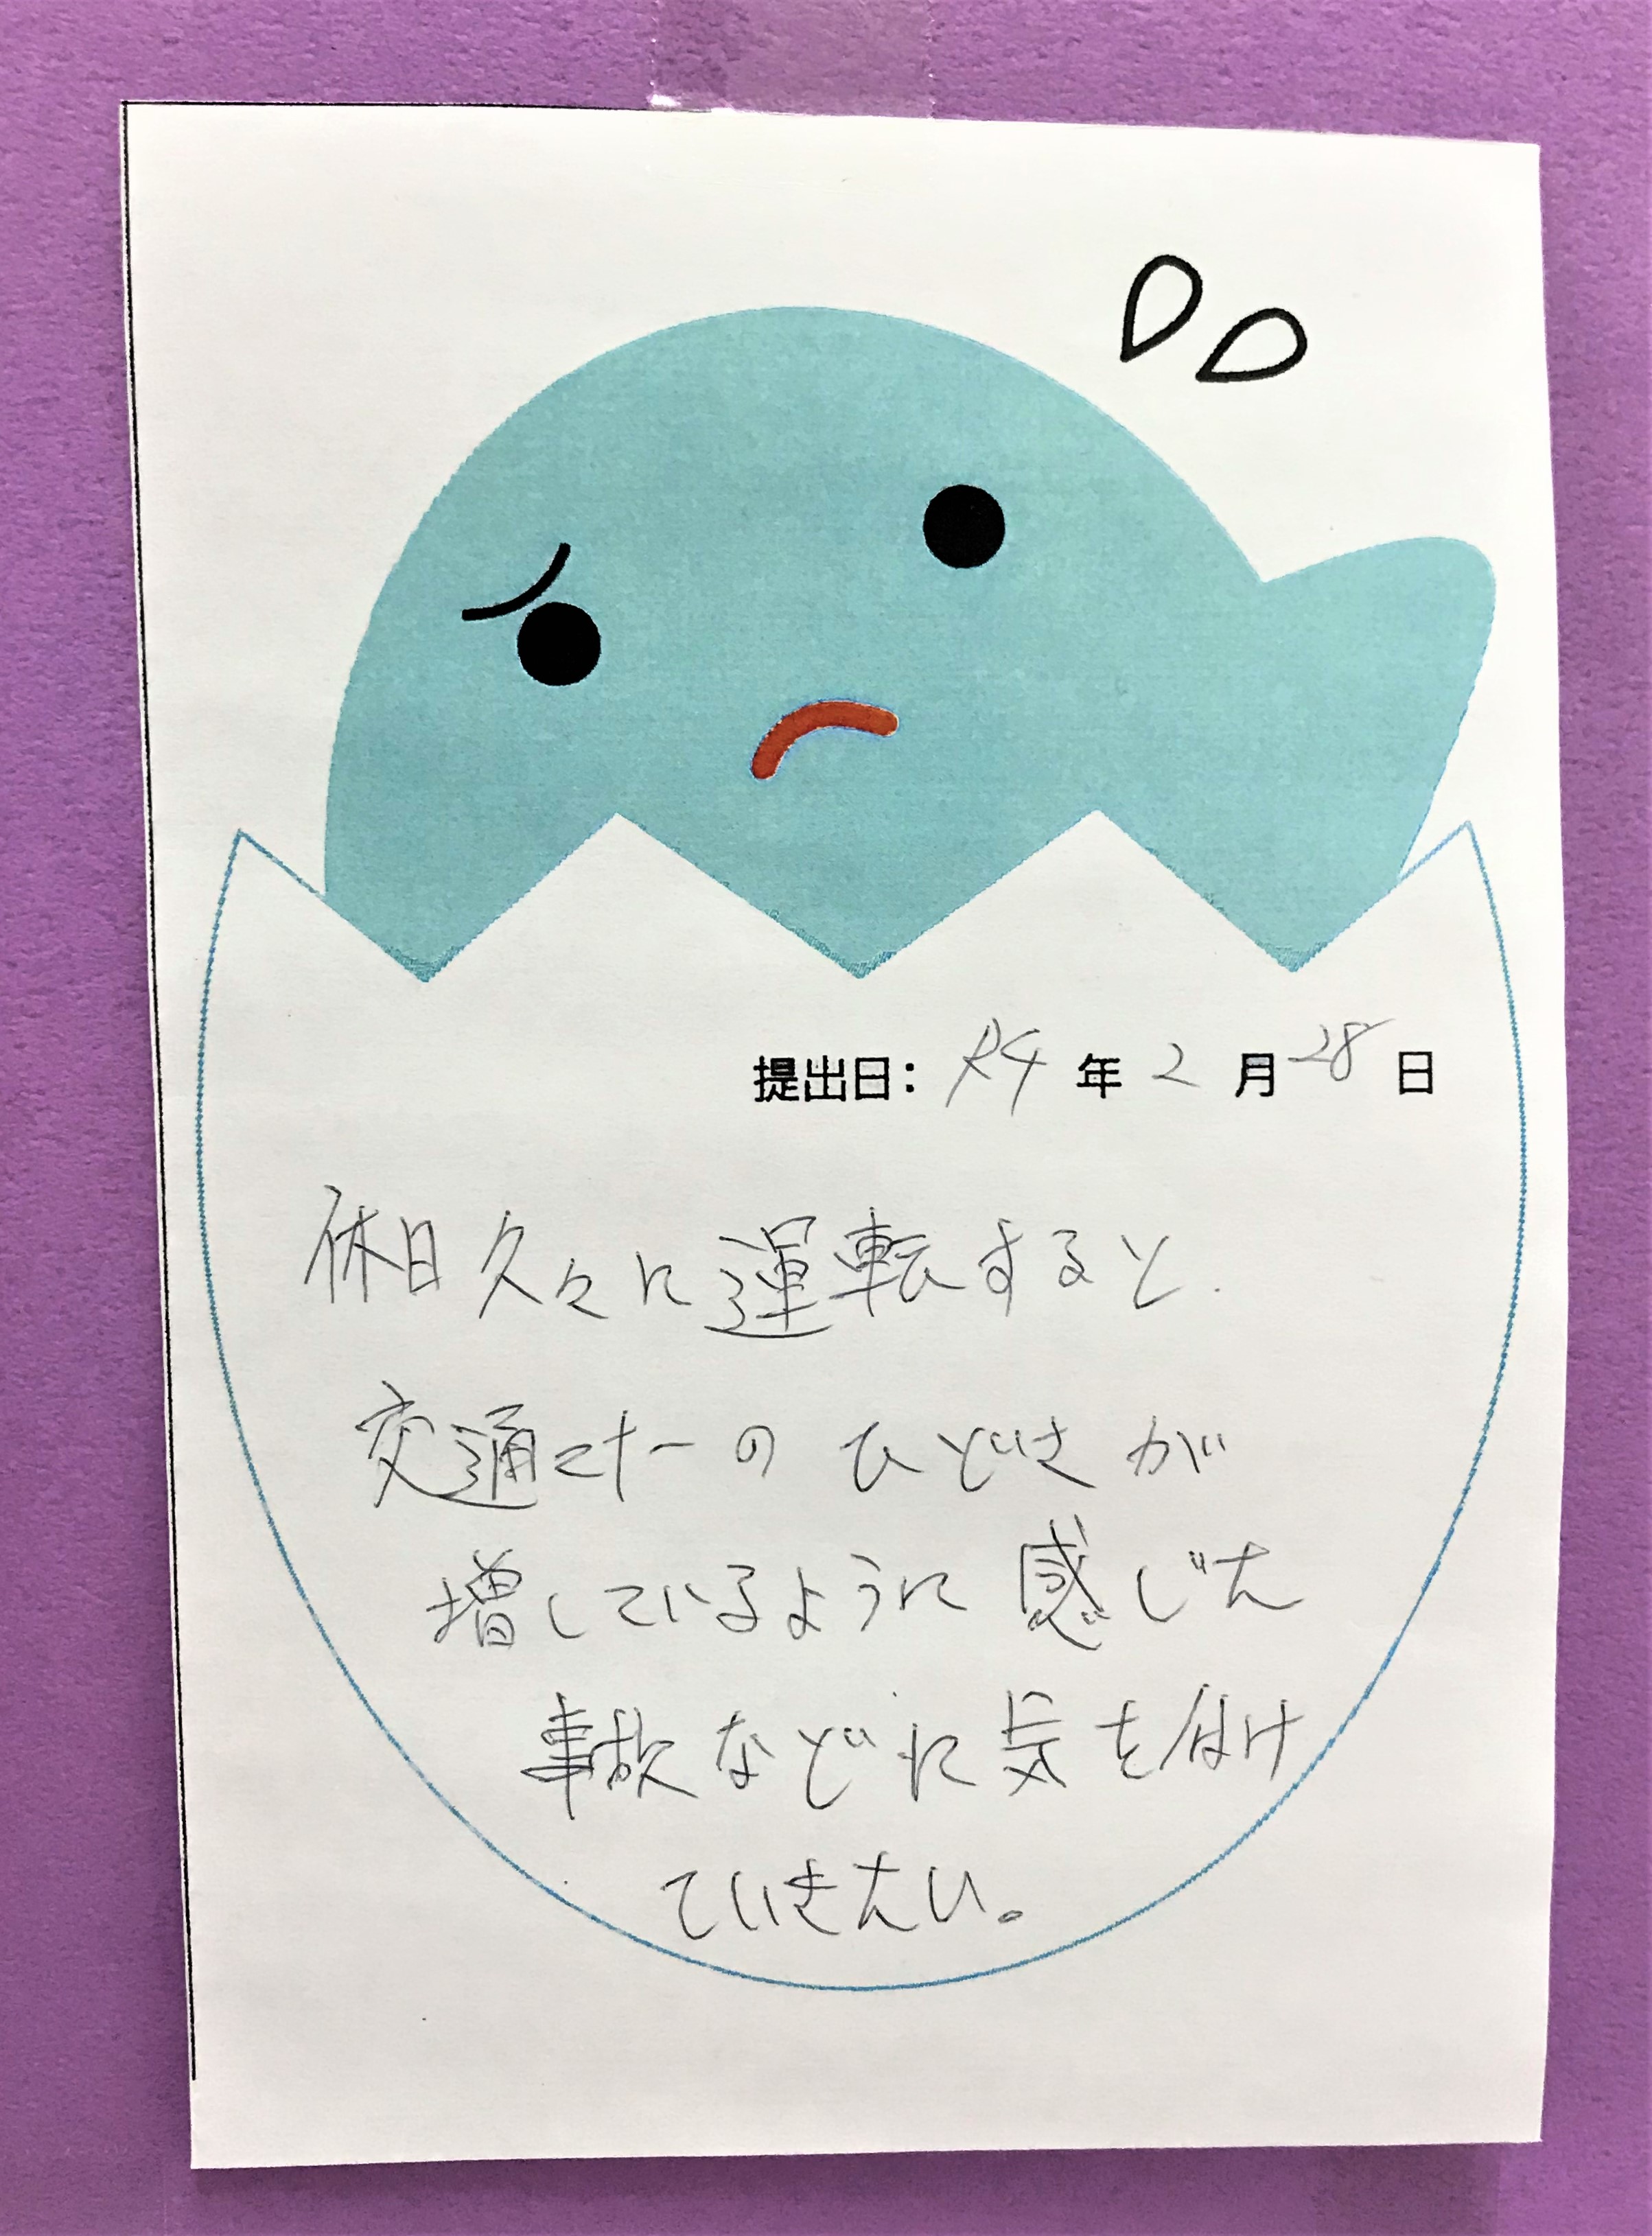 提出日: R4 年 2 月 28 日
休日久々に運転すると、
交通マナーのひどさが
増しているように感じた
事故などに気を付け
ていきたい。